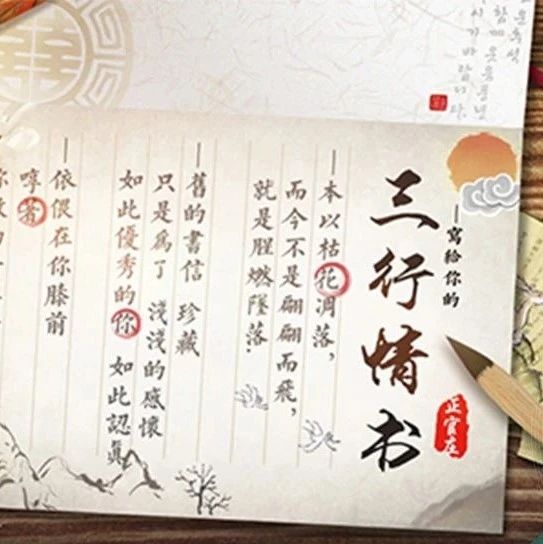 —寫给你的
三行情书
正官庄
—本以枯花凋落，
而今不是翩翩而飛，
就是腥燃墜落.
—舊的書信 珍藏
只是爲了 淺淺的感懷
如此優秀的你 如此認眞
—依偎在你膝前
哼著